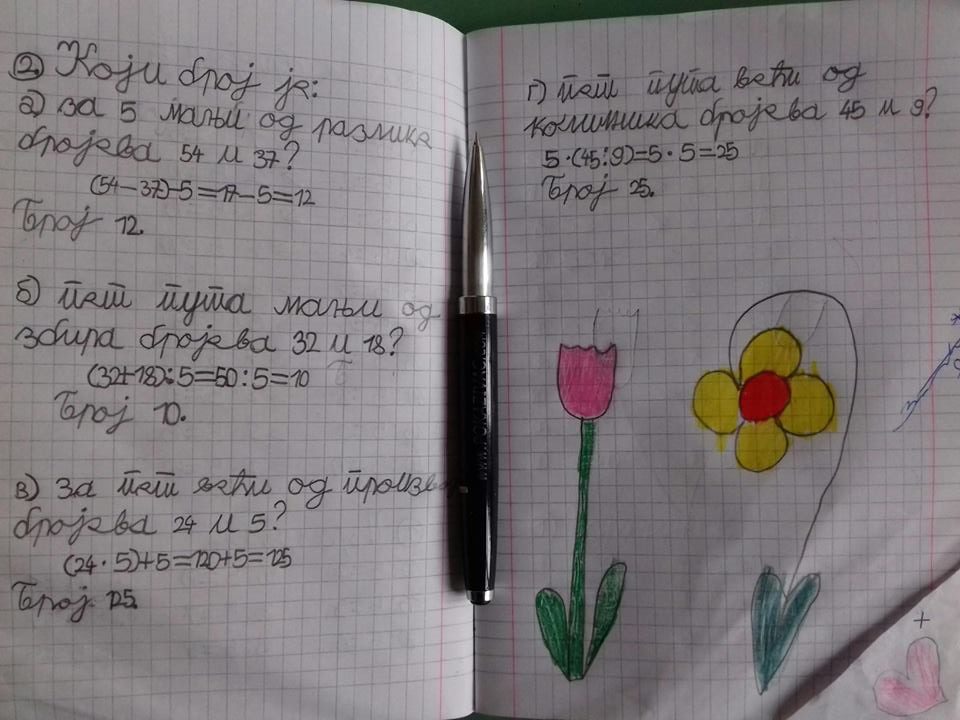 2. Који број је:
а) за 5 мањи од разлике
бројева 54 и 37?
(54-37)-5=17-5=12
Број 12.
б) пет пута мањи од
збира бројева 32 и 18?
(32+18):5=50:5=10
Број 10.
в) за пет већи од
бројева 24 и 5?
(24·5)+5=120+5=125
Број 125.
г) пет пута већи од
количника бројева 45 и 9?
5·(45:9)=5·5=25
Број 25.
+